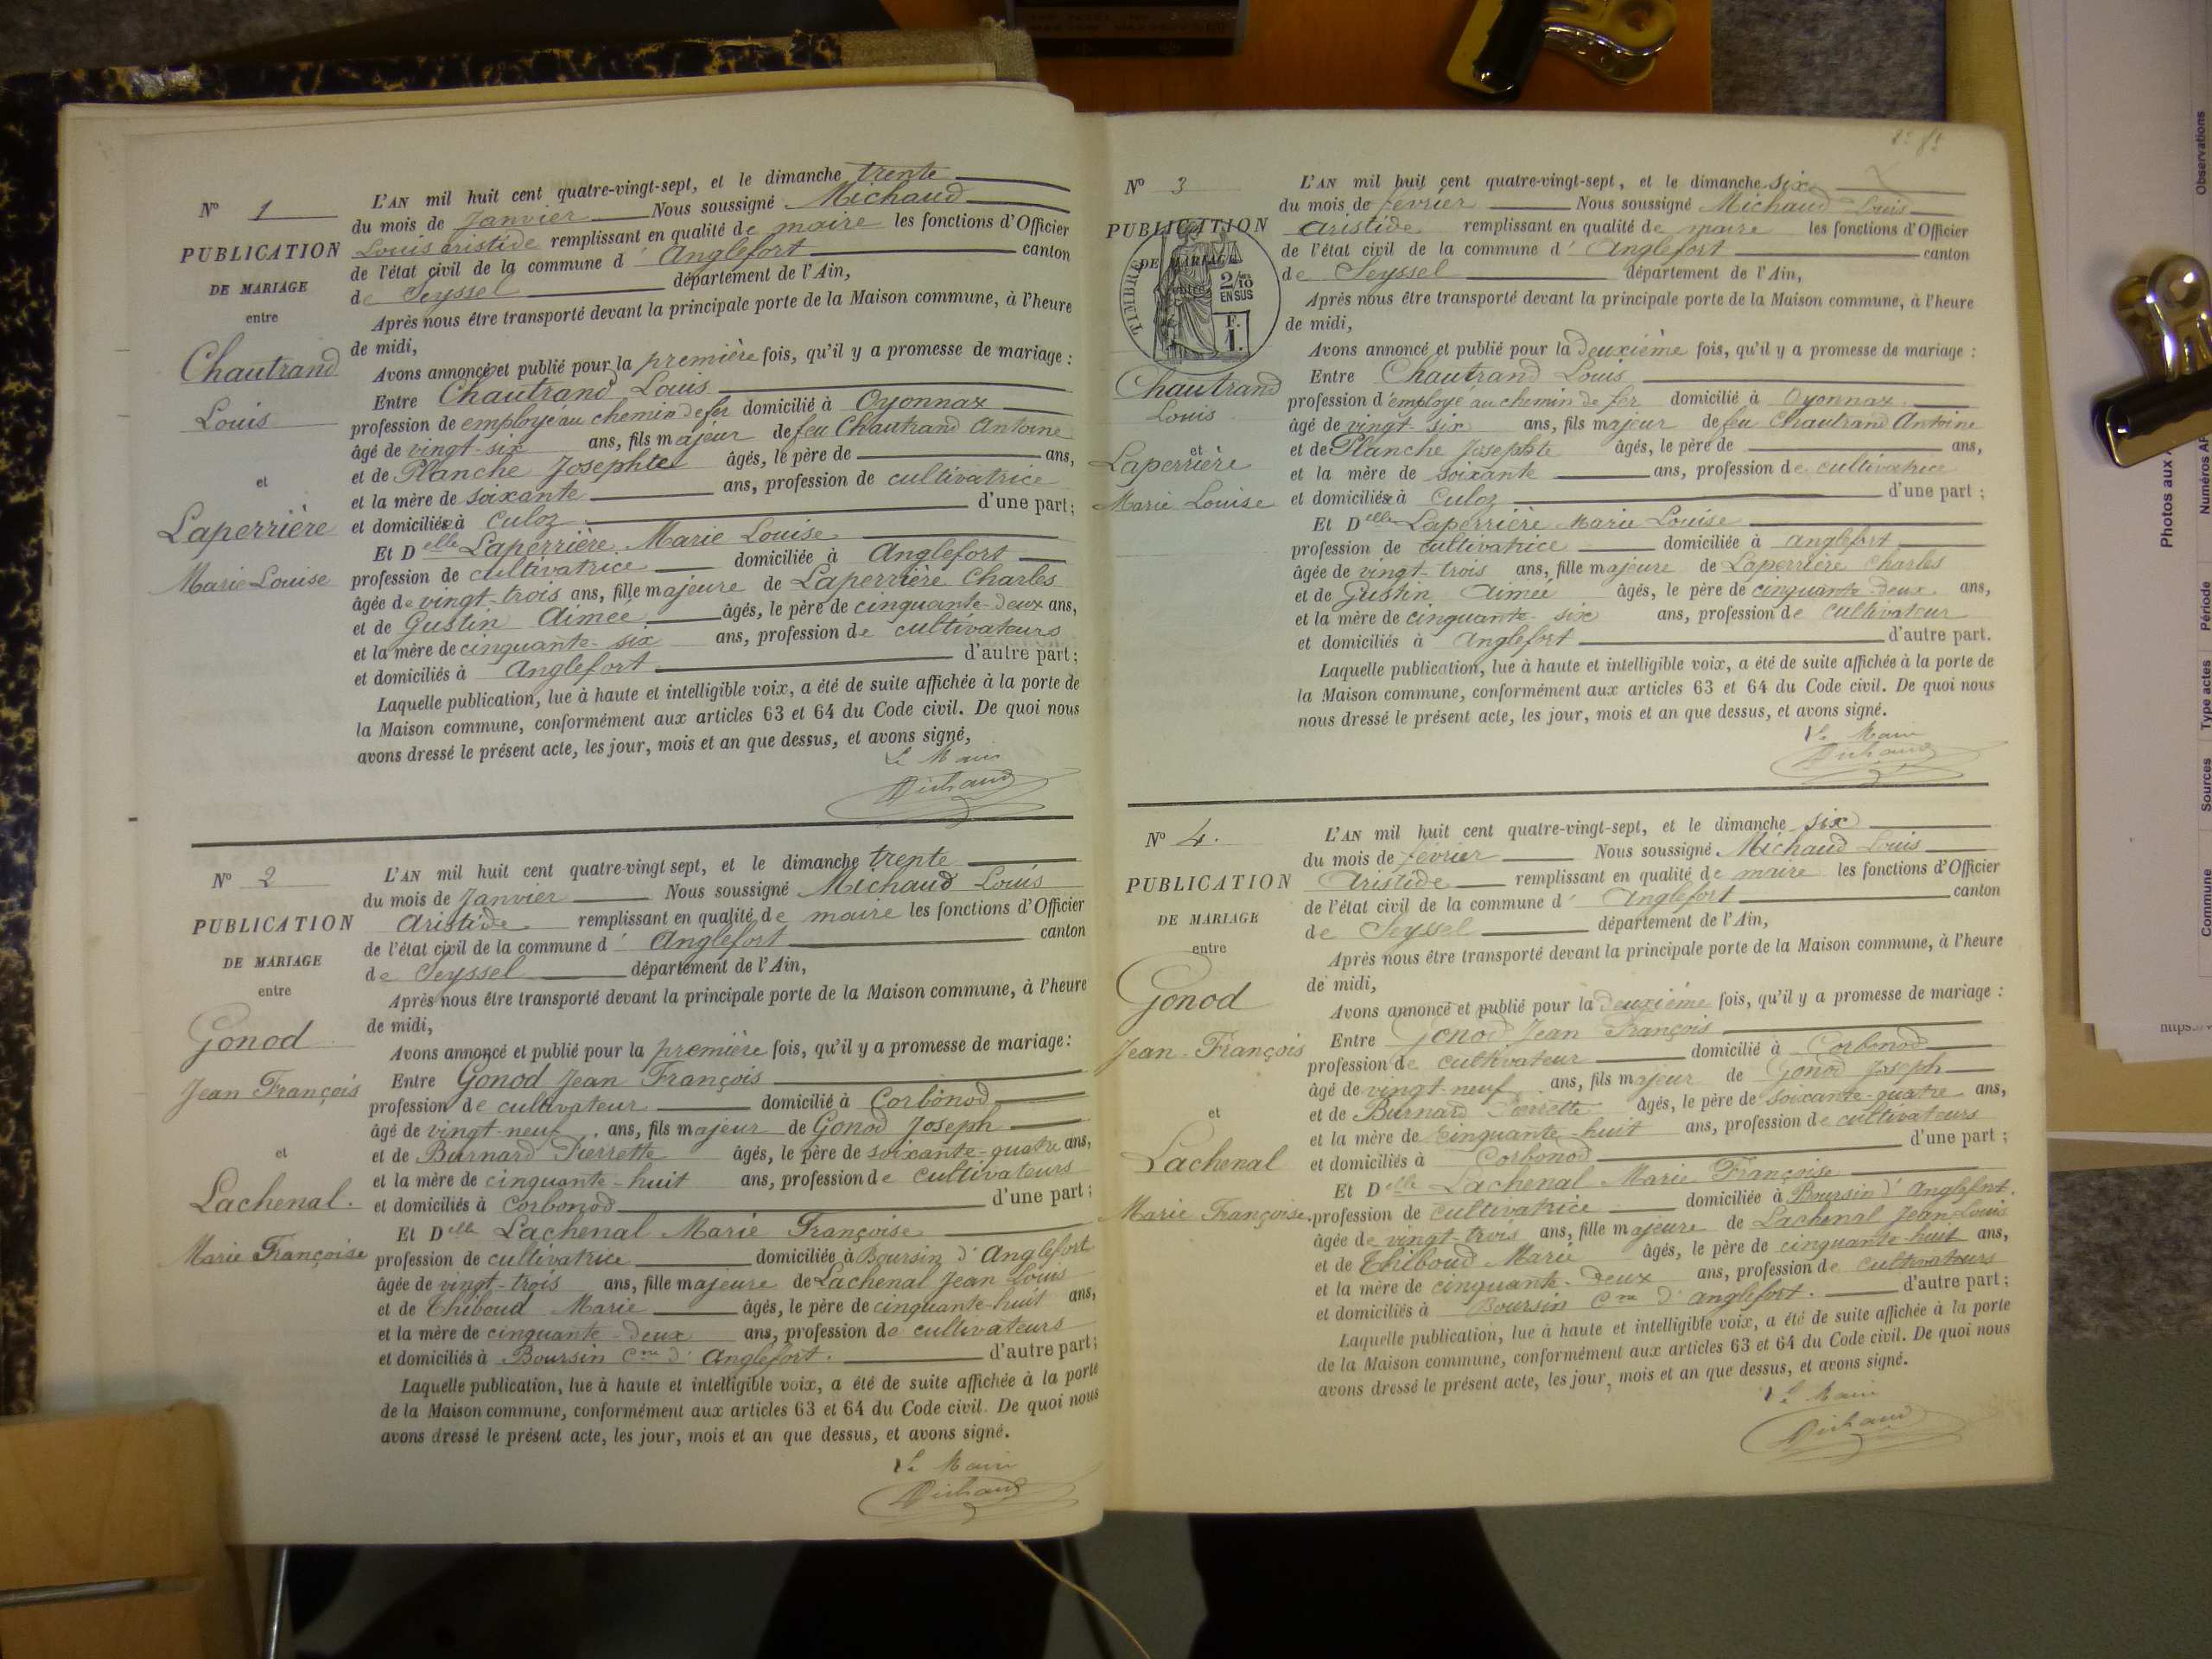 N° 1
PUBLICATION
DE MARIAGE
entre
Chautrand
Louis
et
Laperrière
Marie Louise
L'AN mil huit cent quatre-vingt-sept, et le dimanche trente
du mois de Janvier Nous soussigné Michaud
Louis Aristide remplissant en qualité de maire les fonctions d'Officier
de l'état civil de la commune d' Anglefort canton
de Seyssel département de l'Ain,
Après nous être transporté devant la principale porte de la Maison commune, à l'heure
de midi,
Avons annoncé et publié pour la première fois, qu'il y a promesse de mariage :
Entre Chautrand Louis
profession de employé au chemin de fer domicilié à Oyonnax
âgé de vingt-six ans, fils majeur de feu Chautrand Antoine
et de Planche Josephte âgés, le père de ans,
et la mère de soixante ans, profession de cultivatrice
et domiciliés à Culoz d'une part ;
Et Delle Laperrière Marie Louise
profession de cultivatrice domiciliée à Anglefort
âgée de vingt-trois ans, fille majeure de Laperrière Charles
et de Gustin Aimée âgés, le père de cinquante-deux ans,
et la mère de cinquante-six ans, profession de cultivateurs
et domiciliés à Anglefort d'autre part ;
Laquelle publication, lue à haute et intelligible voix, a été de suite affichée à la porte de
la Maison commune, conformément aux articles 63 et 64 du Code civil. De quoi nous
avons dressé le présent acte, les jour, mois et an que dessus, et avons signé,
Le Maire
Michaud
N° 2
PUBLICATION
DE MARIAGE
entre
Gonod
Jean François
et
Lachenal.
Marie Françoise
L'AN mil huit cent quatre-vingt sept, et le dimanche trente
du mois de Janvier Nous soussigné Michaud Louis
Aristide remplissant en qualité de maire les fonctions d'Officier
de l'état civil de la commune d' Anglefort canton
de Seyssel département de l'Ain,
Après nous être transporté devant la principale porte de la Maison commune, à l'heure
de midi,
Avons annoncé et publié pour la première fois, qu'il y a promesse de mariage :
Entre Gonod Jean François
profession de cultivateur domicilié à Corbonod
âgé de vingt-neuf ans, fils majeur de Gonod Joseph
et de Burnard Pierrette âgés, le père de soixante-quatre ans,
et la mère de cinquante-huit ans, profession de cultivateurs
et domiciliés à Corbonod d'une part ;
Et Delle Lachenal Marie Françoise
profession de cultivatrice domiciliée à Boursin d'Anglefort
âgée de vingt-trois ans, fille majeure de Lachenal Jean Louis
et de Thiboud Marie âgés, le père de cinquante-huit ans,
et la mère de cinquante-deux ans, profession de cultivateurs
et domiciliés à Boursin Cne d'Anglefort. d'autre part ;
Laquelle publication, lue à haute et intelligible voix, a été de suite affichée à la porte
de la Maison commune, conformément aux articles 63 et 64 du Code civil. De quoi nous
avons dressé le présent acte, les jour, mois et an que dessus, et avons signé.
Le Maire
Michaud
N° 3
PUBLICATION
DE MARIAGE
entre
TIMBRE
2/10
EN SUS
F.
1.
Chautrand
Louis
et
Laperrière
Marie Louise
L'AN mil huit cent quatre-vingt-sept, et le dimanche six
du mois de février Nous soussigné Michaud Louis
Aristide remplissant en qualité de maire les fonctions d'Officier
de l'état civil de la commune d' Anglefort canton
de Seyssel département de l'Ain,
Après nous être transporté devant la principale porte de la Maison commune, à l'heure
de midi,
Avons annoncé et publié pour la deuxième fois, qu'il y a promesse de mariage :
Entre Chautrand Louis
profession d'employé au chemin de fer domicilié à Oyonnax
âgé de vingt-six ans, fils majeur de feu Chautrand Antoine
et de Planche Josephte âgés, le père de ans,
et la mère de soixante ans, profession de cultivatrice
et domiciliés à Culoz d'une part ;
Et Delle Laperrière Marie Louise
profession de cultivatrice domiciliée à Anglefort
âgée de vingt-trois ans, fille majeure de Laperrière Charles
et de Gustin Aimée âgés, le père de cinquante-deux ans,
et la mère de cinquante-six ans, profession de cultivateur
et domiciliés à Anglefort d'autre part.
Laquelle publication, lue à haute et intelligible voix, a été de suite affichée à la porte de
la Maison commune, conformément aux articles 63 et 64 du Code civil. De quoi nous
nous dressé le présent acte, les jour, mois et an que dessus, et avons signé.
Le Maire
Michaud
N° 4.
PUBLICATION
DE MARIAGE
entre
Gonod
Jean-François
et
Lachenal
Marie Françoise.
L'AN mil huit cent quatre-vingt-sept, et le dimanche six
du mois de février Nous soussigné Michaud Louis
Aristide remplissant en qualité de maire les fonctions d'Officier
de l'état civil de la commune d' Anglefort canton
de Seyssel département de l'Ain,
Après nous être transporté devant la principale porte de la Maison commune, à l'heure
de midi,
Avons annoncé et publié pour la deuxième fois, qu'il y a promesse de mariage :
Entre Gonod Jean François
profession de cultivateur domicilié à Corbonod
âgé de vingt-neuf ans, fils majeur de Gonod Joseph
et de Burnard Pierrette âgés, le père de soixante-quatre ans,
et la mère de cinquante-huit ans, profession de cultivateurs
et domiciliés à Corbonod d'une part ;
Et Delle Lachenal Marie Françoise
profession de cultivatrice domiciliée à Boursin d'Anglefort.
âgée de vingt-trois ans, fille majeure de Lachenal Jean Louis
et de Thiboud Marie âgés, le père de cinquante-huit ans,
et la mère de cinquante-deux ans, profession de cultivateurs
et domiciliés à Boursin Cne d'Anglefort. d'autre part ;
Laquelle publication, lue à haute et intelligible voix, a été de suite affichée à la porte
de la Maison commune, conformément aux articles 63 et 64 du Code civil. De quoi nous
avons dressé le présent acte, les jour, mois et an que dessus, et avons signé.
Le Maire
Michaud
Commune
Sources
Type actes
Période
Numéros
Observations
Photos aux